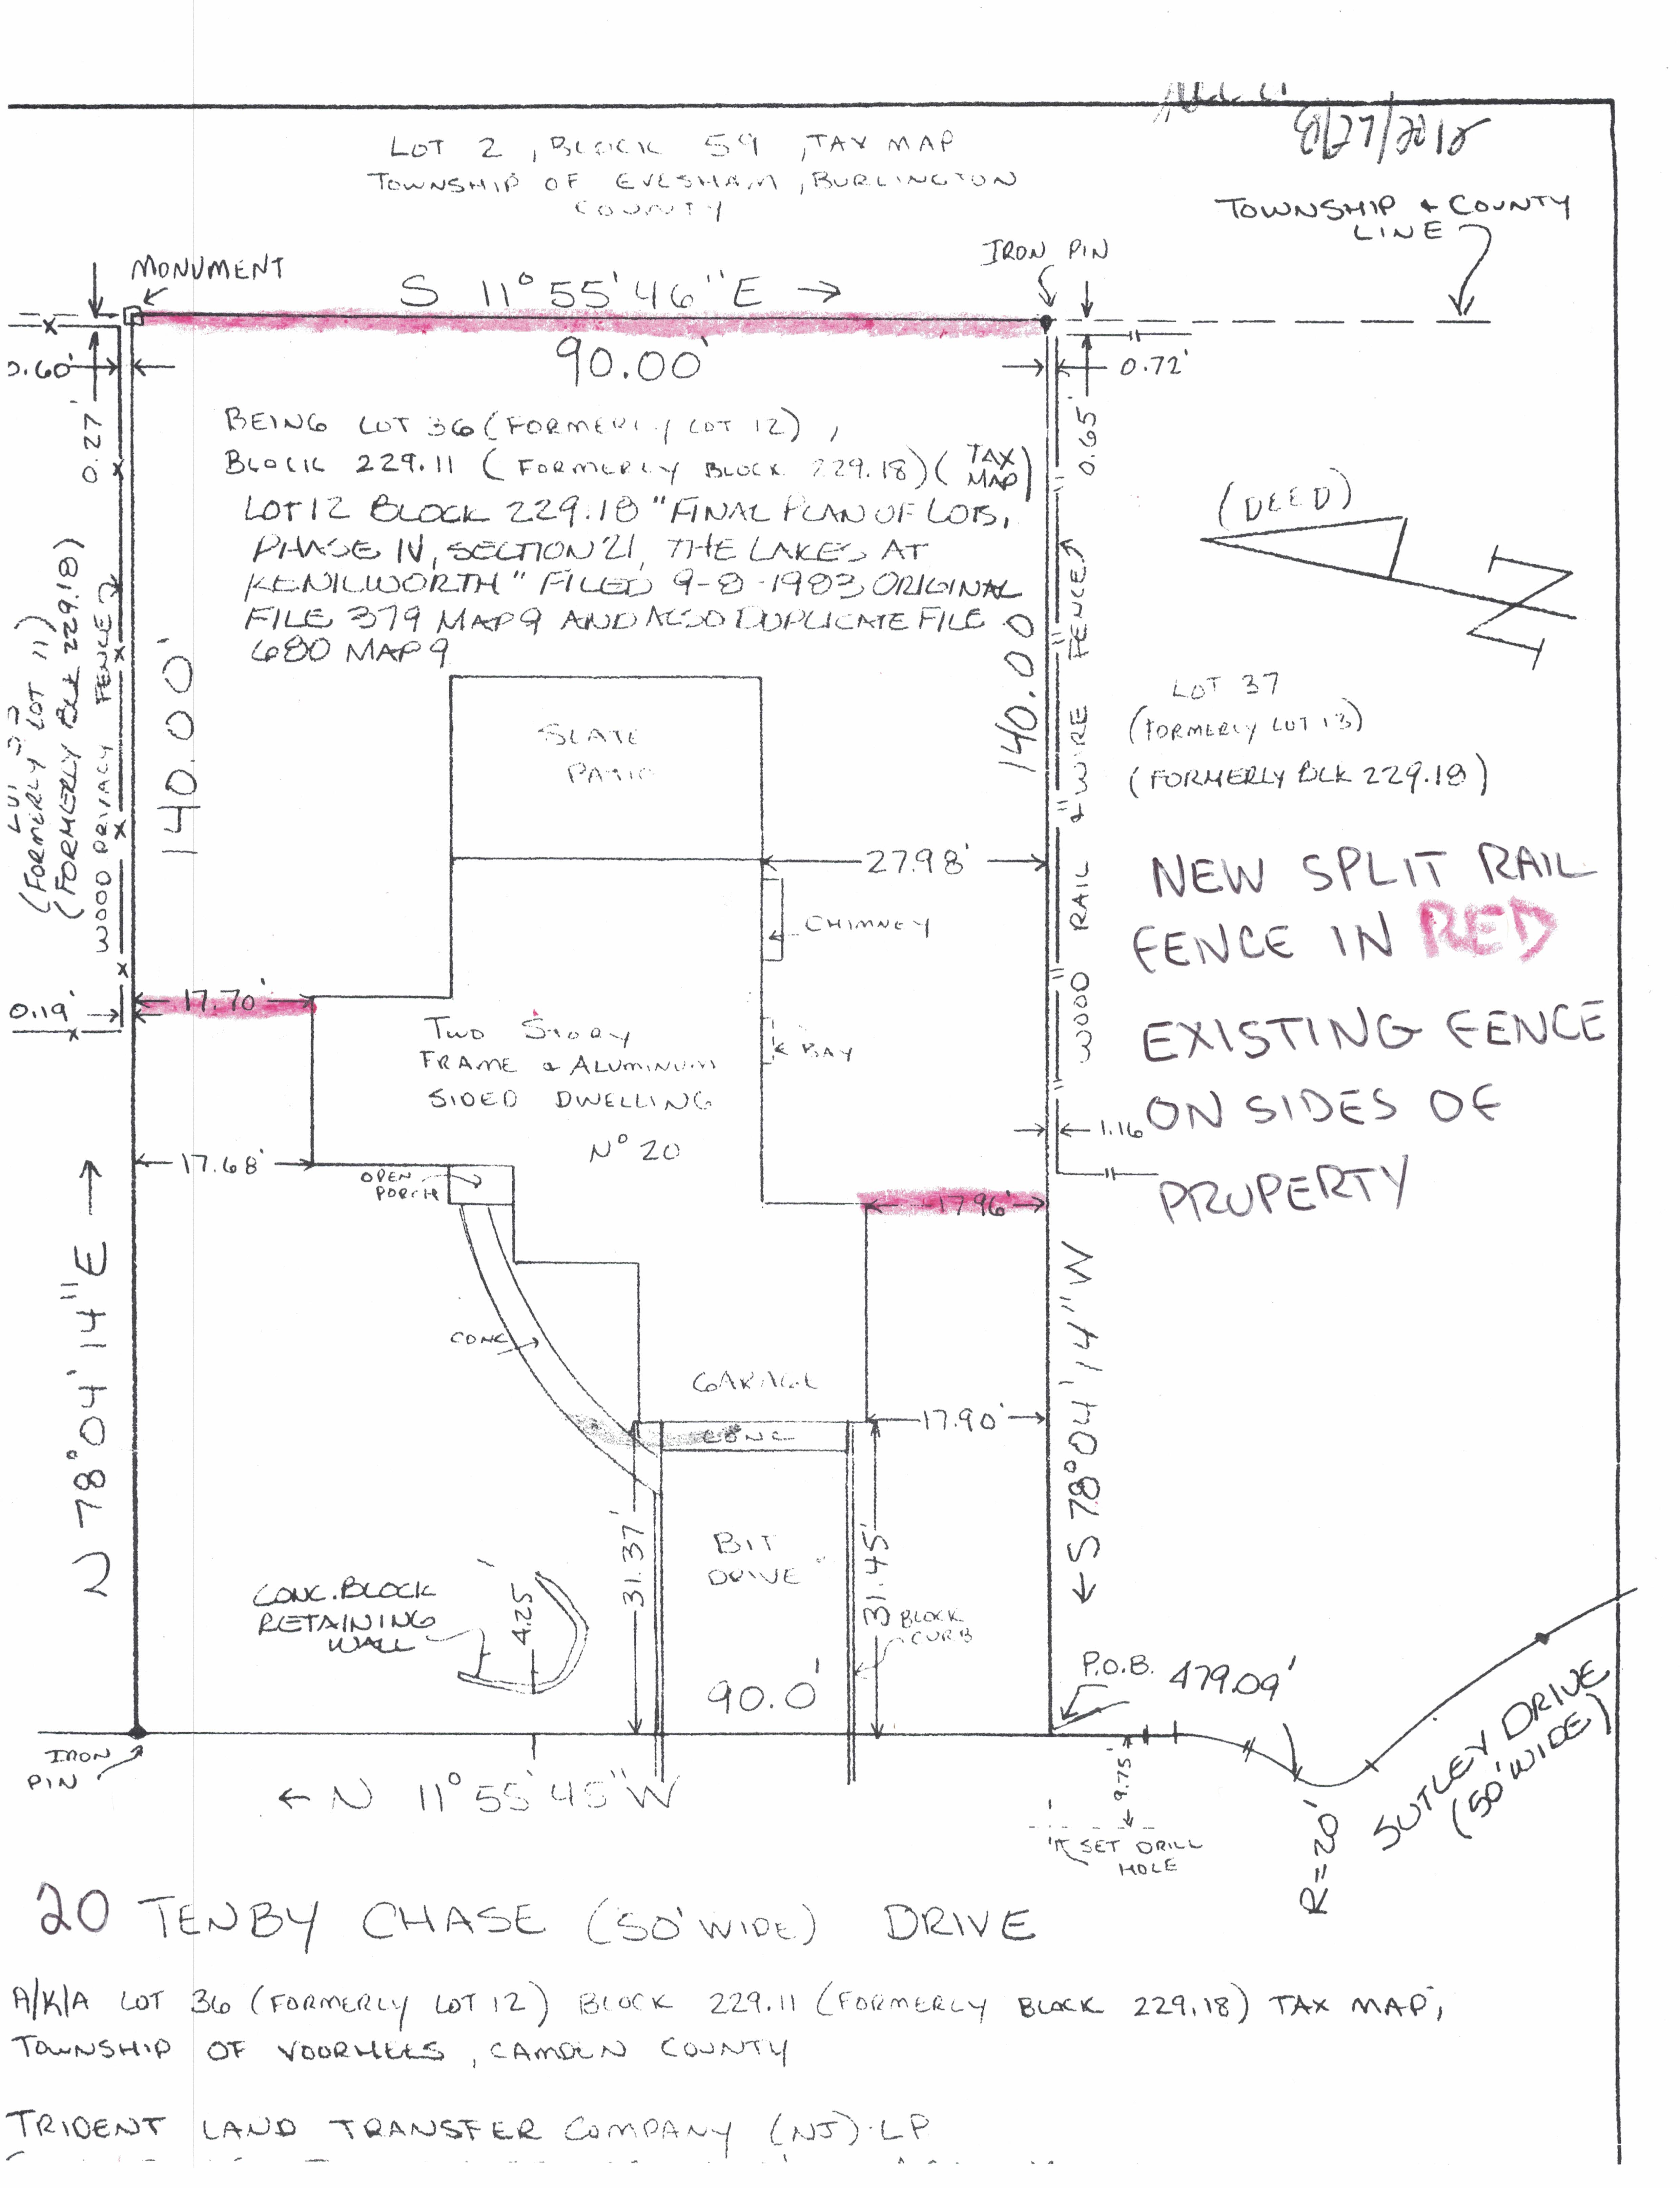 8/27/2018
LOT 2, BLOCK 59, TAX MAP
TOWNSHIP OF EVESHAM, BURLINGTON
COUNTY
TOWNSHIP & COUNTY
LINE
MONUMENT
IRON PIN
S 11° 55' 46" E →
90.00'
0.60'
0.27'
0.72'
0.65'
BEING LOT 36 (FORMERLY LOT 12),
BLOCK 229.11 (FORMERLY BLOCK 229.18) (TAX MAP)
LOT 12 BLOCK 229.18 "FINAL PLAN OF LOTS,
PHASE IV, SECTION 21, THE LAKES AT
KENILWORTH" FILED 9-8-1983 ORIGINAL
FILE 379 MAP 9 AND ALSO DUPLICATE FILE
680 MAP 9
(DEED)
N
(FORMERLY LOT 11)
(FORMERLY BLK 229.18)
WOOD PRIVACY FENCE
140.00'
140.00
WOOD RAIL & WIRE FENCE
LOT 37
(FORMERLY LOT 13)
(FORMERLY BLK 229.18)
SLATE
PATIO
27.98'
CHIMNEY
NEW SPLIT RAIL
FENCE IN RED
EXISTING FENCE
ON SIDES OF
PROPERTY
17.70'
0.19'
TWO STORY
FRAME & ALUMINUM
SIDED DWELLING
Nº 20
BAY
1.16
17.68'
OPEN
PORCH
17.96'
N 78° 04' 14" E →
← S 78° 04' 14" W
CONC
GARAGE
17.90'
CONC
31.37'
BIT
DRIVE
31.45'
BLOCK
CURB
CONC. BLOCK
RETAINING
WALL
4.25'
90.0'
P.O.B.
479.09'
SUTLEY DRIVE
(50' WIDE)
R=20'
IRON
PIN
← N 11° 55' 45" W
9.75'
SET DRILL
HOLE
20 TENBY CHASE (50' WIDE) DRIVE
A/K/A LOT 36 (FORMERLY LOT 12) BLOCK 229.11 (FORMERLY BLOCK 229.18) TAX MAP,
TOWNSHIP OF VOORHEES, CAMDEN COUNTY
TRIDENT LAND TRANSFER COMPANY (NJ) LP